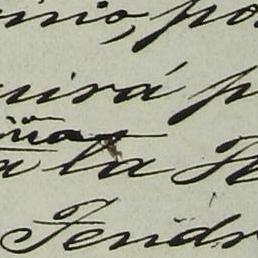 inio, po
uirá p
ñas
a la H
Tendr